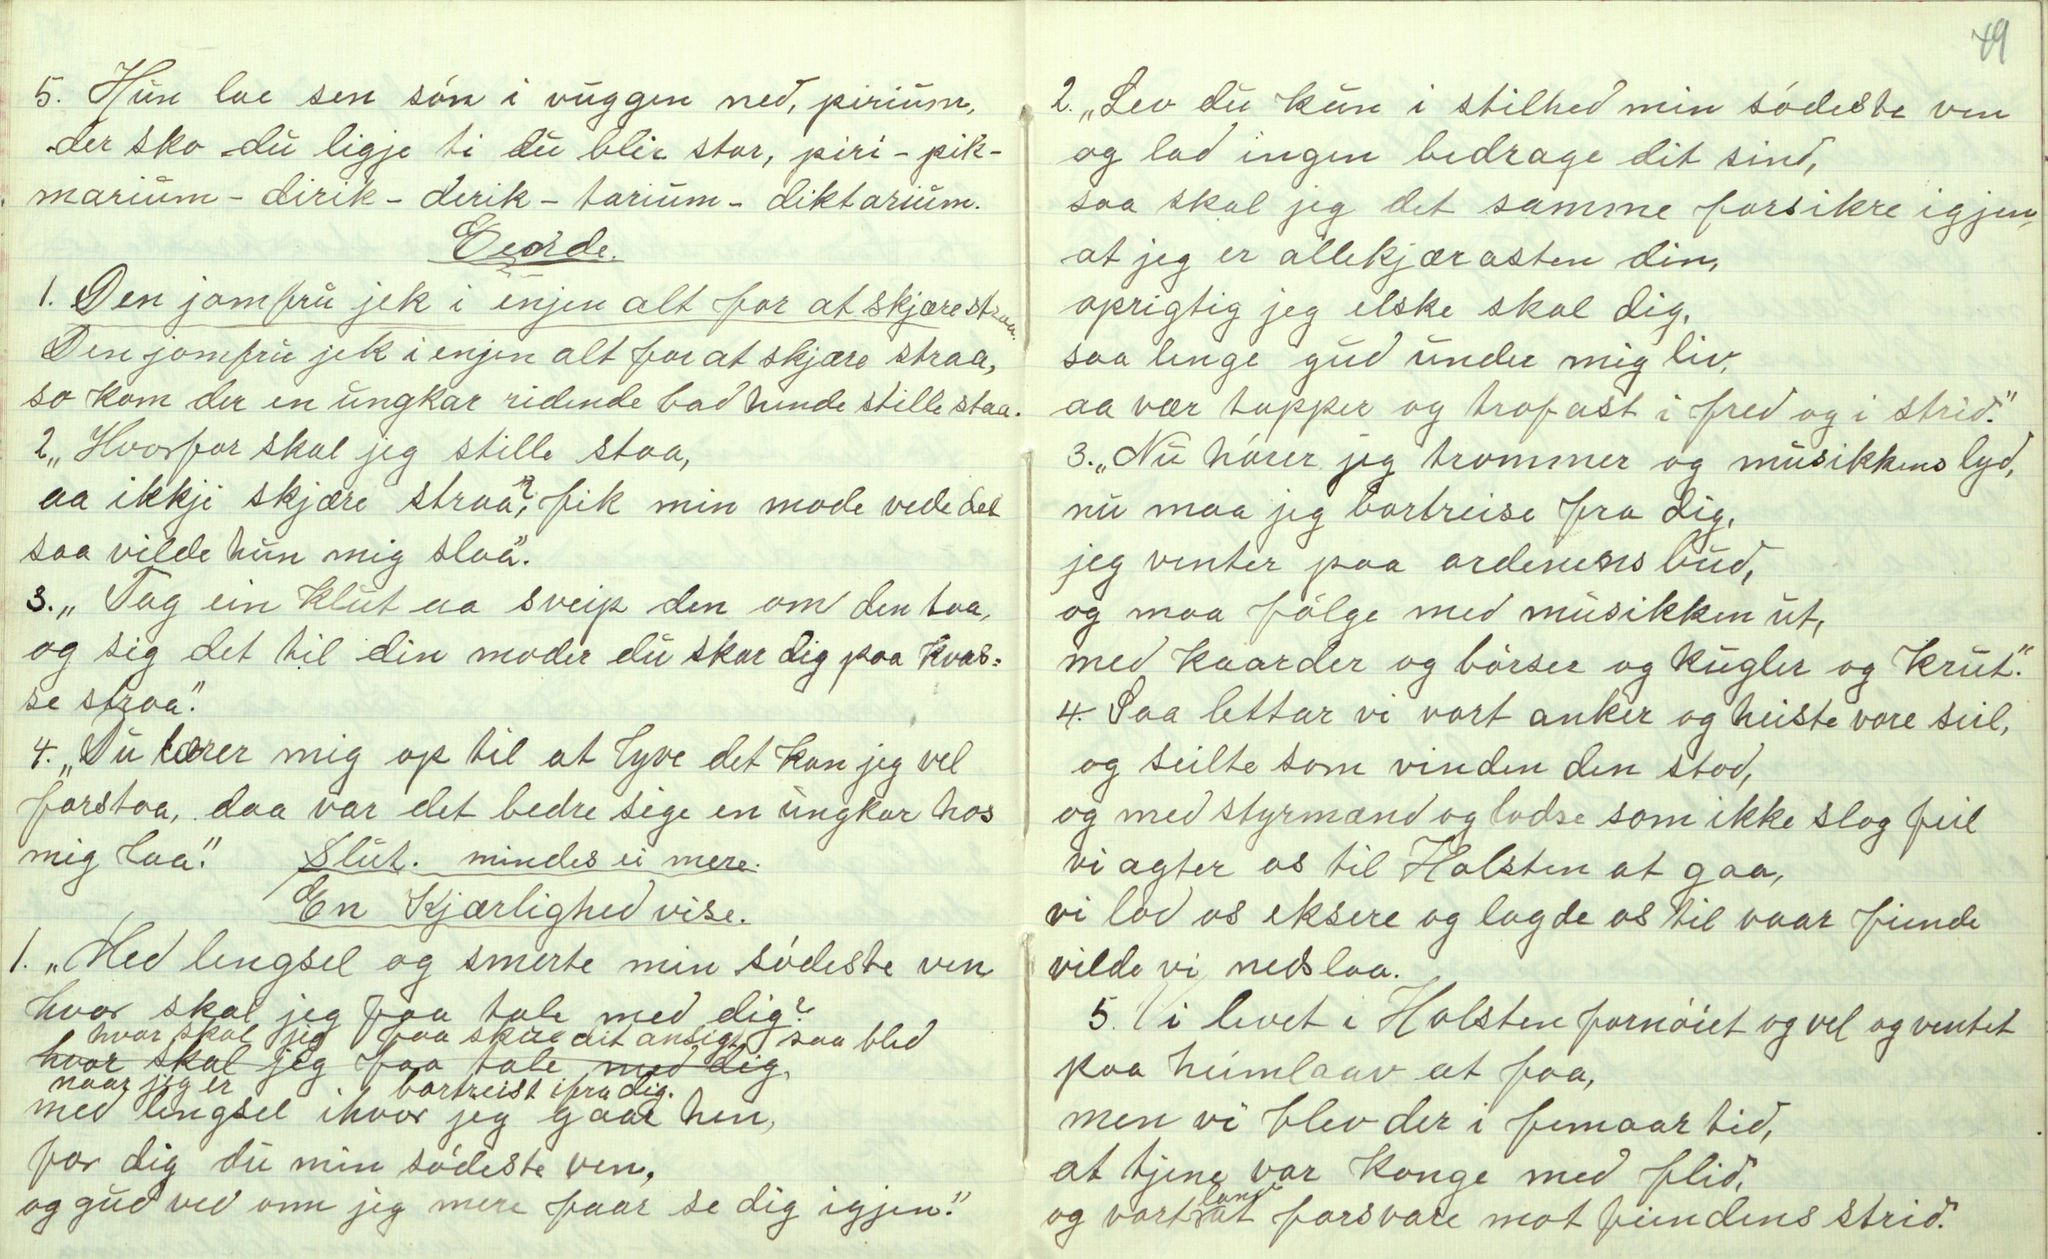 5. Hun lae sen són i vuggen ned, pirium,
der sko du ligje ti du blir stor, piri-pik-
marium-dirik-derik-tarium-diktarium.
1. Den jomfru jek i enjen alt for at skjære straa.
Den jomfru jek i enjen alt for at skjære straa,
so kom der en ungkar ridende bad hende stille staa.
2. „Hvorfor skal jeg stille staa,
aa ikkji skjære straa?, fik min mode vede det
saa vilde hun mig slaa".
3. „Tag ein klut aa sveip den om den taa,
og sig det til din moder du skar dig paa kvas=
se straa".
4. „Du lærer mig op til at lyve det kan jeg vel
forstaa, daa var det bedre sige en ungkar hos
mig laa". Slut. mindes ei mere.
En Kjærlighed vise.
1. „Med lengsel og smerte min sódeste ven
hvor skal jeg faa tale med dig?
hvor skal jeg faa skue dit ansigt saa bled
hvor skal jeg faa tale med dig,
naar jeg er bortreist ifra dig.
med lengsel ihvor jeg gaar hen,
for dig du min sódeste ven,
og gud ved om jeg mere faar se dig igjen."
49
2. „Lev du kun i stilhed min sódeste ven
og lad ingen bedrage dit sind,
saa skal jeg det samme forsikre igjen,
at jeg er allekjærasten din,
oprigtig jeg elske skal dig,
saa lenge gud under mig liv,
aa vær tapper og trofast i fred og i strid."
3. „Nu hórer jeg trommer og musikkens lyd,
nu maa jeg bortreise fra dig,
jeg venter paa ordenens bud,
og maa fólge med musikken ut,
med kaarder og bórser og kugler og krut."
4. Saa lettar vi vort anker og heiste vore seil,
og seilte som vinden den stod,
og med styrmænd og lodse som ikke slog feil
vi agter os til Holsten at gaa,
vi lod os eksere og lagde os til vaar fiende
vilde vi nedslaa.
5. Vi levet i Holsten fornóiet og vel og ventet
paa heimlaav at faa,
men vi blev der i femaar tid,
at tjene vor konge med flid,
og vort land at forsvare mot fiendens strid."